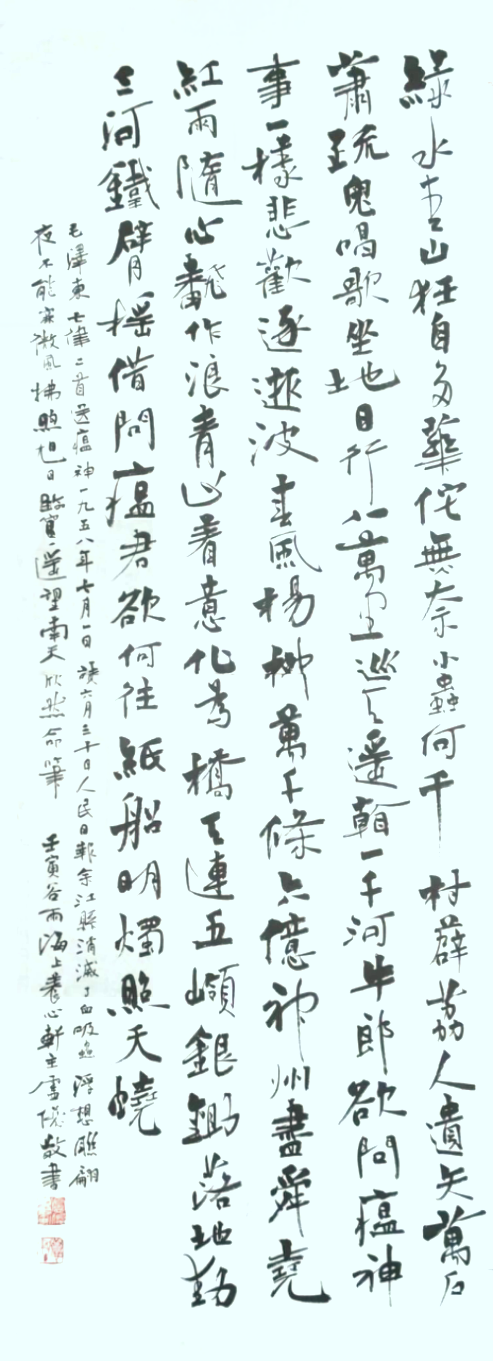 綠水青山枉自多華佗無奈小蟲何千村薜荔人遺矢萬戶
蕭疏鬼唱歌坐地日行八萬里巡天遙看一千河牛郎欲問瘟神
事一樣悲歡逐逝波春風楊柳萬千條六億神州盡舜堯
紅雨隨心翻作浪青山着意化為橋天連五嶺銀鋤落地動
三河鐵臂搖借問瘟君欲何往紙船明燭照天燒
毛澤東七律二首送瘟神一九五八年七月一日讀六月三十日人民日報余江縣消滅了血吸蟲浮想聯翩
夜不能寐微風拂煦旭日臨窗遙望南天欣然命筆 壬寅谷雨海上養心軒主敬書